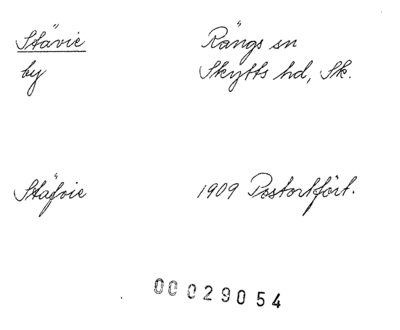 Stävie Rängs sn
by Skytts hd, Sk.
Stäfvie 1909 Postortfört.
00 029054